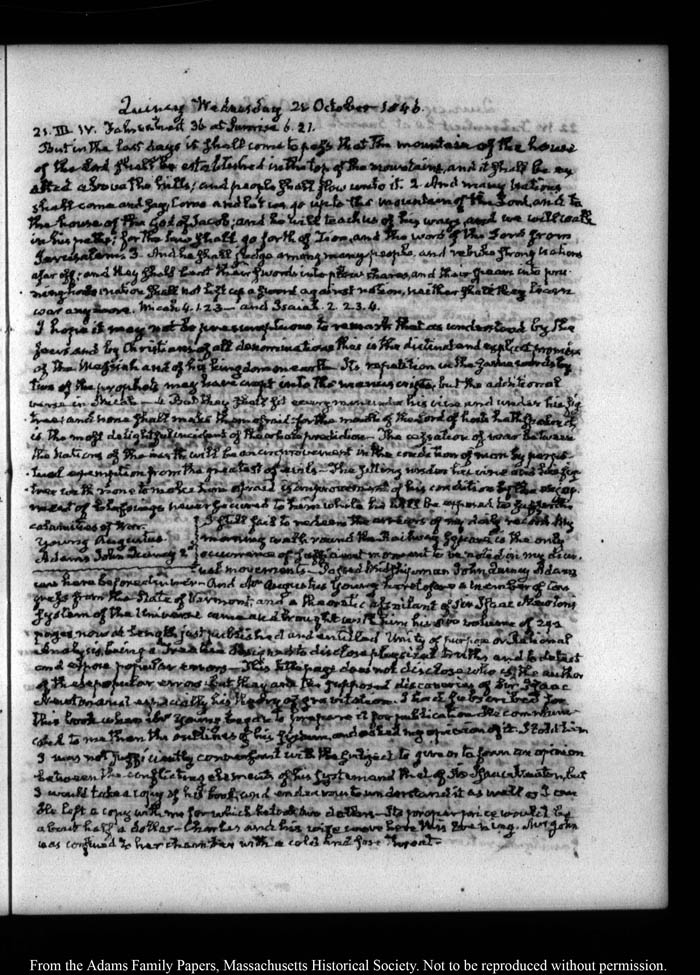 Quincy Wednesday 21 October 1846.
21. III. IV. Fahrenheit 36 at Sunrise 6.21.
But in the last days it shall come to pass that the mountain of the house
of the Lord shall be established in the top of the mountains, and it shall be ex
alted above the hills; and people shall flow unto it. 2 And many Nations
shall come and say, Come and let us go up to the mountain of the Lord, and to
the house of the God of Jacob; and he will teach us of his ways, and we will walk
in his paths; for the Law shall go forth of Zion, and the word of the Lord from
Jerusalem. 3. And he shall judge among many people, and rebuke strong Nations
afar off; and they shall beat their swords into plow shares, and their spears into pru
ning hooks: nation shall not lift up a sword against nation, neither shall they learn
war any more. Micah 4. 1.2.3 — and Isaiah. 2. 2.3.4.
I hope it may not be presumptuous to remark that as understood by the
Jews and by Christians of all denominations this is the distinct and explicit promise
of the Messiah and of his kingdom on earth. Its repetition in the same words by
two of the prophets may have crept into the manuscripts, but the additional
verse in Micah — 4 But they shall sit every man under his vine and under his fig
tree; and none shall make them afraid: for the mouth of the Lord of hosts hath spoken it,
is the most delightful incident of the whole prediction — The cessation of war between
the Nations of the earth will be an improvement in the condition of man by perpe
tual exemption from the greatest of evils — The sitting under his vine and his fig
tree with none to make him afraid is an improvement of his condition by the
ment of never secured to him while he shall be exposed to
calamities of War.
Young Augustus
Adams John Quincy 2d
I still fail to redeem the arrears of my daily record. My
morning walk round the Railway Square is the only
occurrence of sufficient moment to be noted on my diur
nal movements — Passed Midshipman John Quincy Adams
was here before dinner — And Mr Augustus Young heretofore a member of Con
gress from the State of Vermont, and a theoretic assailant of Sir Isaac Newtons
System of the Universe came and brought with him his volume of 292
pages now at length just published and entitled Unity of purpose or Rational
Analysis, being a Treatise designed to disclose physical truths and to detect
and expose popular errors — This title page does not disclose who is the author
of these popular errors but they are the supposed discoveries of Sir Isaac
Newton and especially his theory of gravitation. I had subscribed for
this book when Mr Young began to prepare it for publication. He communi
cated to me then the outlines of his System, and asked my opinion of it. I told him
I was not sufficiently conversant with the subject to give or to form an opinion
between the conflicting elements of his System and that of Sir Isaac Newton, but
I would take a copy of his book, and endeavour to understand it as well as I can
He left a copy with me for which he took two dollars — Its proper price would be
about half a dollar — Charles and his wife were here this Evening. Mrs John
was confined to her chamber with a cold and sore throat —
From the Adams Family Papers, Massachusetts Historical Society. Not to be reproduced without permission.